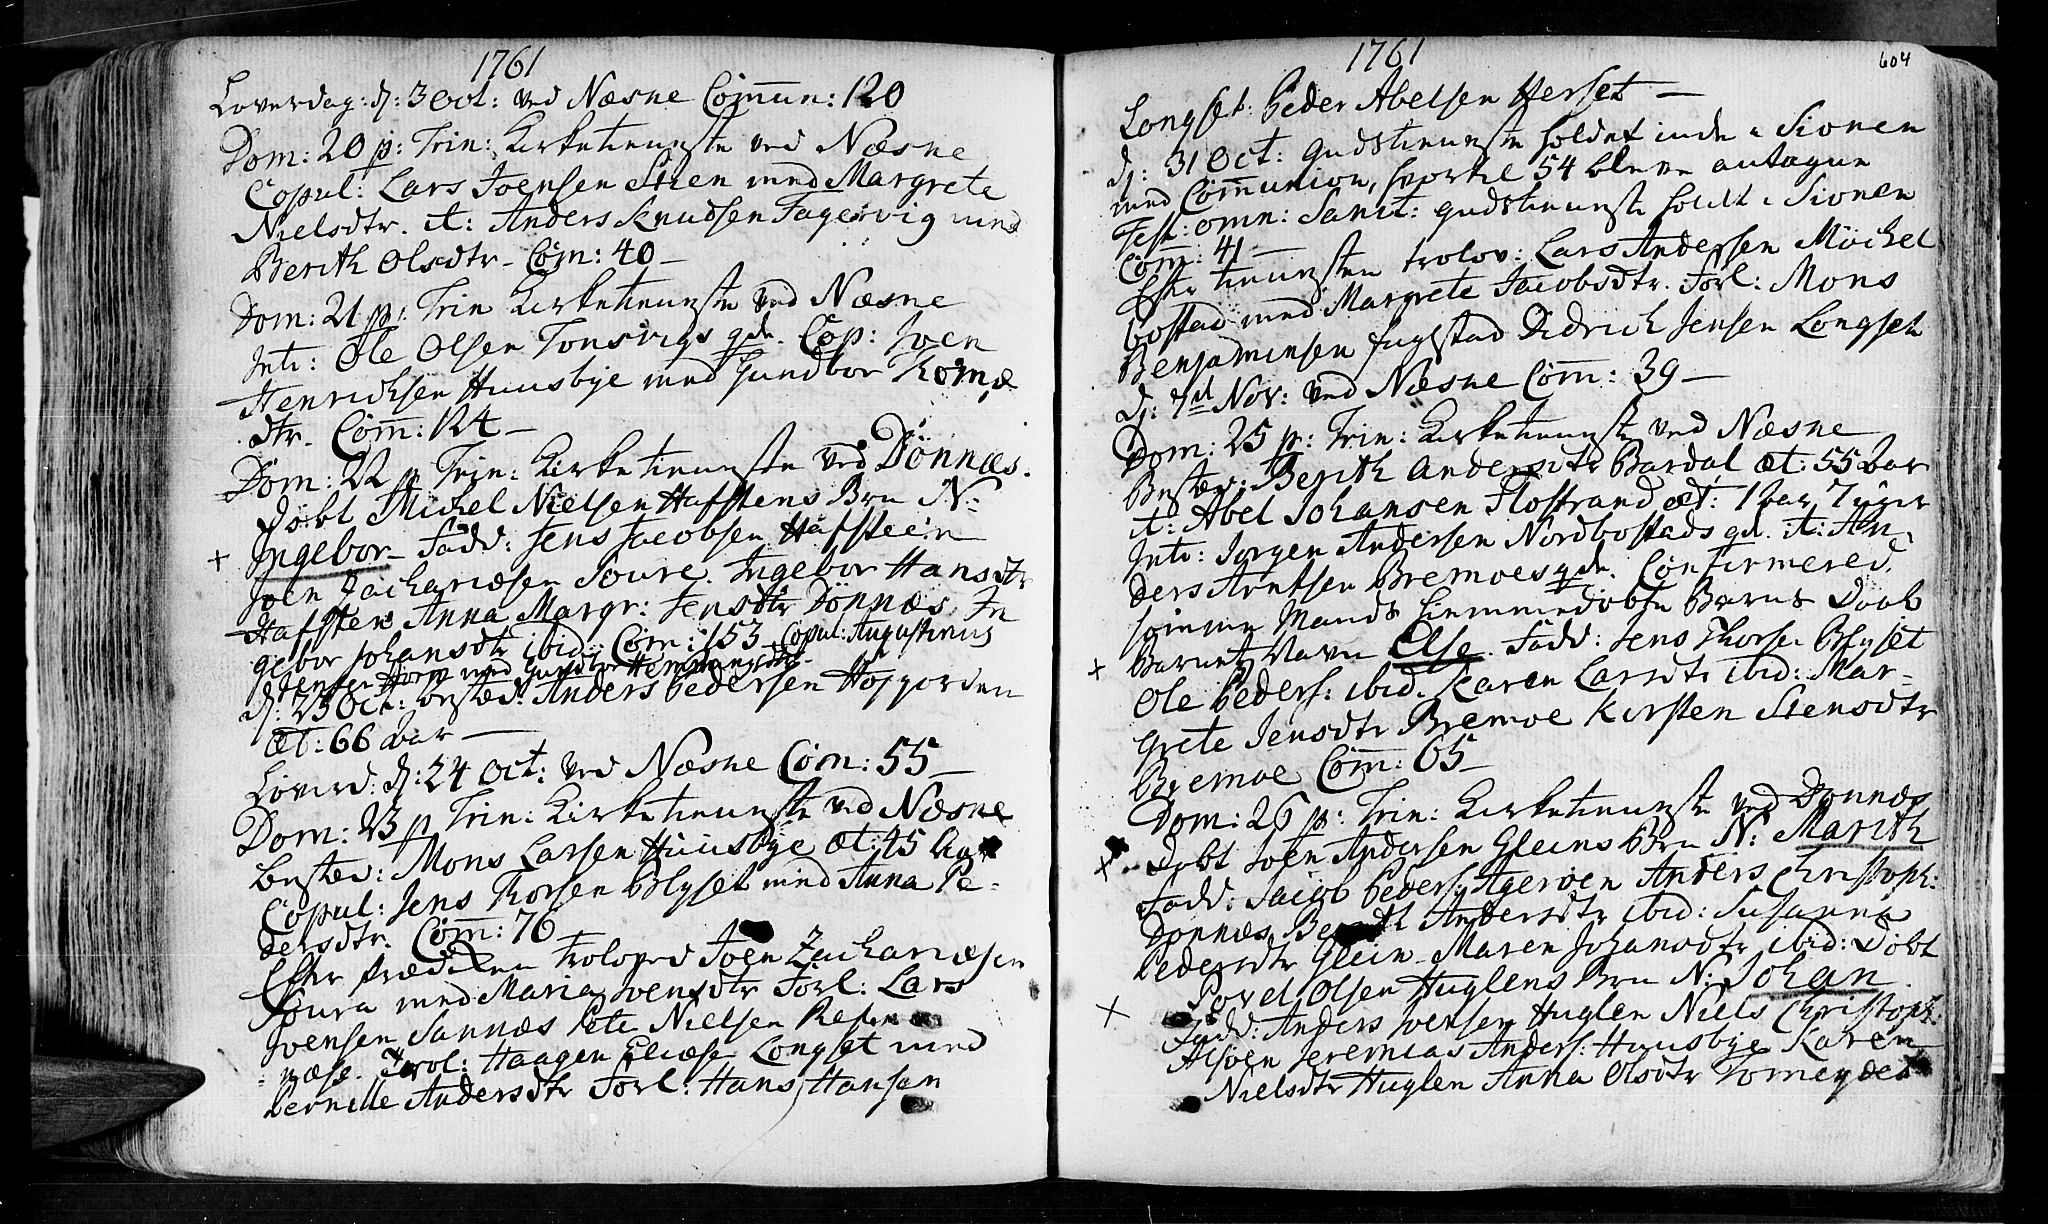 1761
Loverdag: d: 3 Oct: ved Næsne Com̄un: 120
Dom: 20 p: Trin: Kirketienneste ved Næsne
Copul: Lars Joensen Steen med Margrete
Nielsdtr. it: Anders Knudsen Fagervig med
Berith Olsdtr. Com̄: 40 —
Dom: 21 p: Trin Kirketienneste ved Næsne
Intr: Ole Olsen Tonsvigs qde. Cop: Joen
Henrichsen Huusbye med Gundbor Thomæ
dtr. Com̄: 124 —
Dom: 22 p Trin: Kirketienneste ved Dönnæs.
Döbt Michel Nielsen Hafstens Brn N:
Ingebor — Fadd: Jens Jacobsen Hafsteen
Joen Zachariæsen Soure. Ingebor Hansdtr
Hafsten Anna Margr: Jensdtr Dönnæs In
gebor Johansdtr ibid: Com̄: 153 Copul: Augustinus
Jensen Horn med Gundbor Hemmingsdtr.
d: 23 Oct: bested: Anders Pedersen Högjorden
æt: 66 aar —
Loverd: d: 24 Oct: ved Næsne Com̄: 55 —
Dom: 23 p Trin: Kirketienneste ved Næsne
Bested: Mons Larsen Huusbye æt: 45 Aar
Copul: Jens Thorsen Blyset med Anna Pe-
dersdtr. Com̄: 76
Efter Prædiken troloved Joen Zachariæsen
Soura med Maria Joensdtr Forl: Lars
Joensen Sannæs Peter Nielsen
næse. Trol: Haagen Eliæse Longset med
Pernille Andersdtr Forl: Hans Hansen
1761
604
Longset. Peder Abelsen Herset —
d: 31 Oct: gudstienneste holdet inde i Sionen
med Com̄union, hvortil 54 bleve antagne
Fest: omn: Sanct: gudstienneste holdt i Sionen
Com̄: 41 —
Efter tiennesten trolov: Lars Andersen Möchel
bostad med Margrete Jacobsdtr. Forl: Mons
Benjaminsen fuglstad Didrich Jensen Longset
d: 7de Nov: ved Næsne Com̄: 39 —
Dom: 25 p: Trin: Kirketienneste ved Næsne
Bested: Berith Andersdtr Bardal æt: 55 aar
it: Abel Johansen Flostrand æt: 1 aar 7 uger
Intr: Jörgen Andersen Nordbostads qd. it: An-
ders Arntsen Bremoes qde. Confirmered
samme Mands hiemmedöbte Barns Daab
Barnets Navn Else. Fadd: Jens Thorse Blyset
Ole Peders: ibid. Karen Larsdtr ibid: Mar-
grete Jensdtr Bremoe Kirsten Stensdtr
Bremoe Com̄: 65 —
Dom: 26 p: Trin: Kirketienneste ved Dönnæs
Döbt Joen Andersen Gleins Brn N: Marith
Fadd: Jacob Peders: Ageröen Anders Christoph:
Dönnæs Berith Andersdtr ibid: Susanna
Pedersdtr Glein — Maren Johansdtr ibid: Döbt
Povel Olsen Huglens Brn N: Johan.
Fadd: Anders Joensen Huglen Niels Christoph:
Alsöen Jeremias Anders: Huusbye Karen
Nielsdtr Huglen Anna Olsdtr